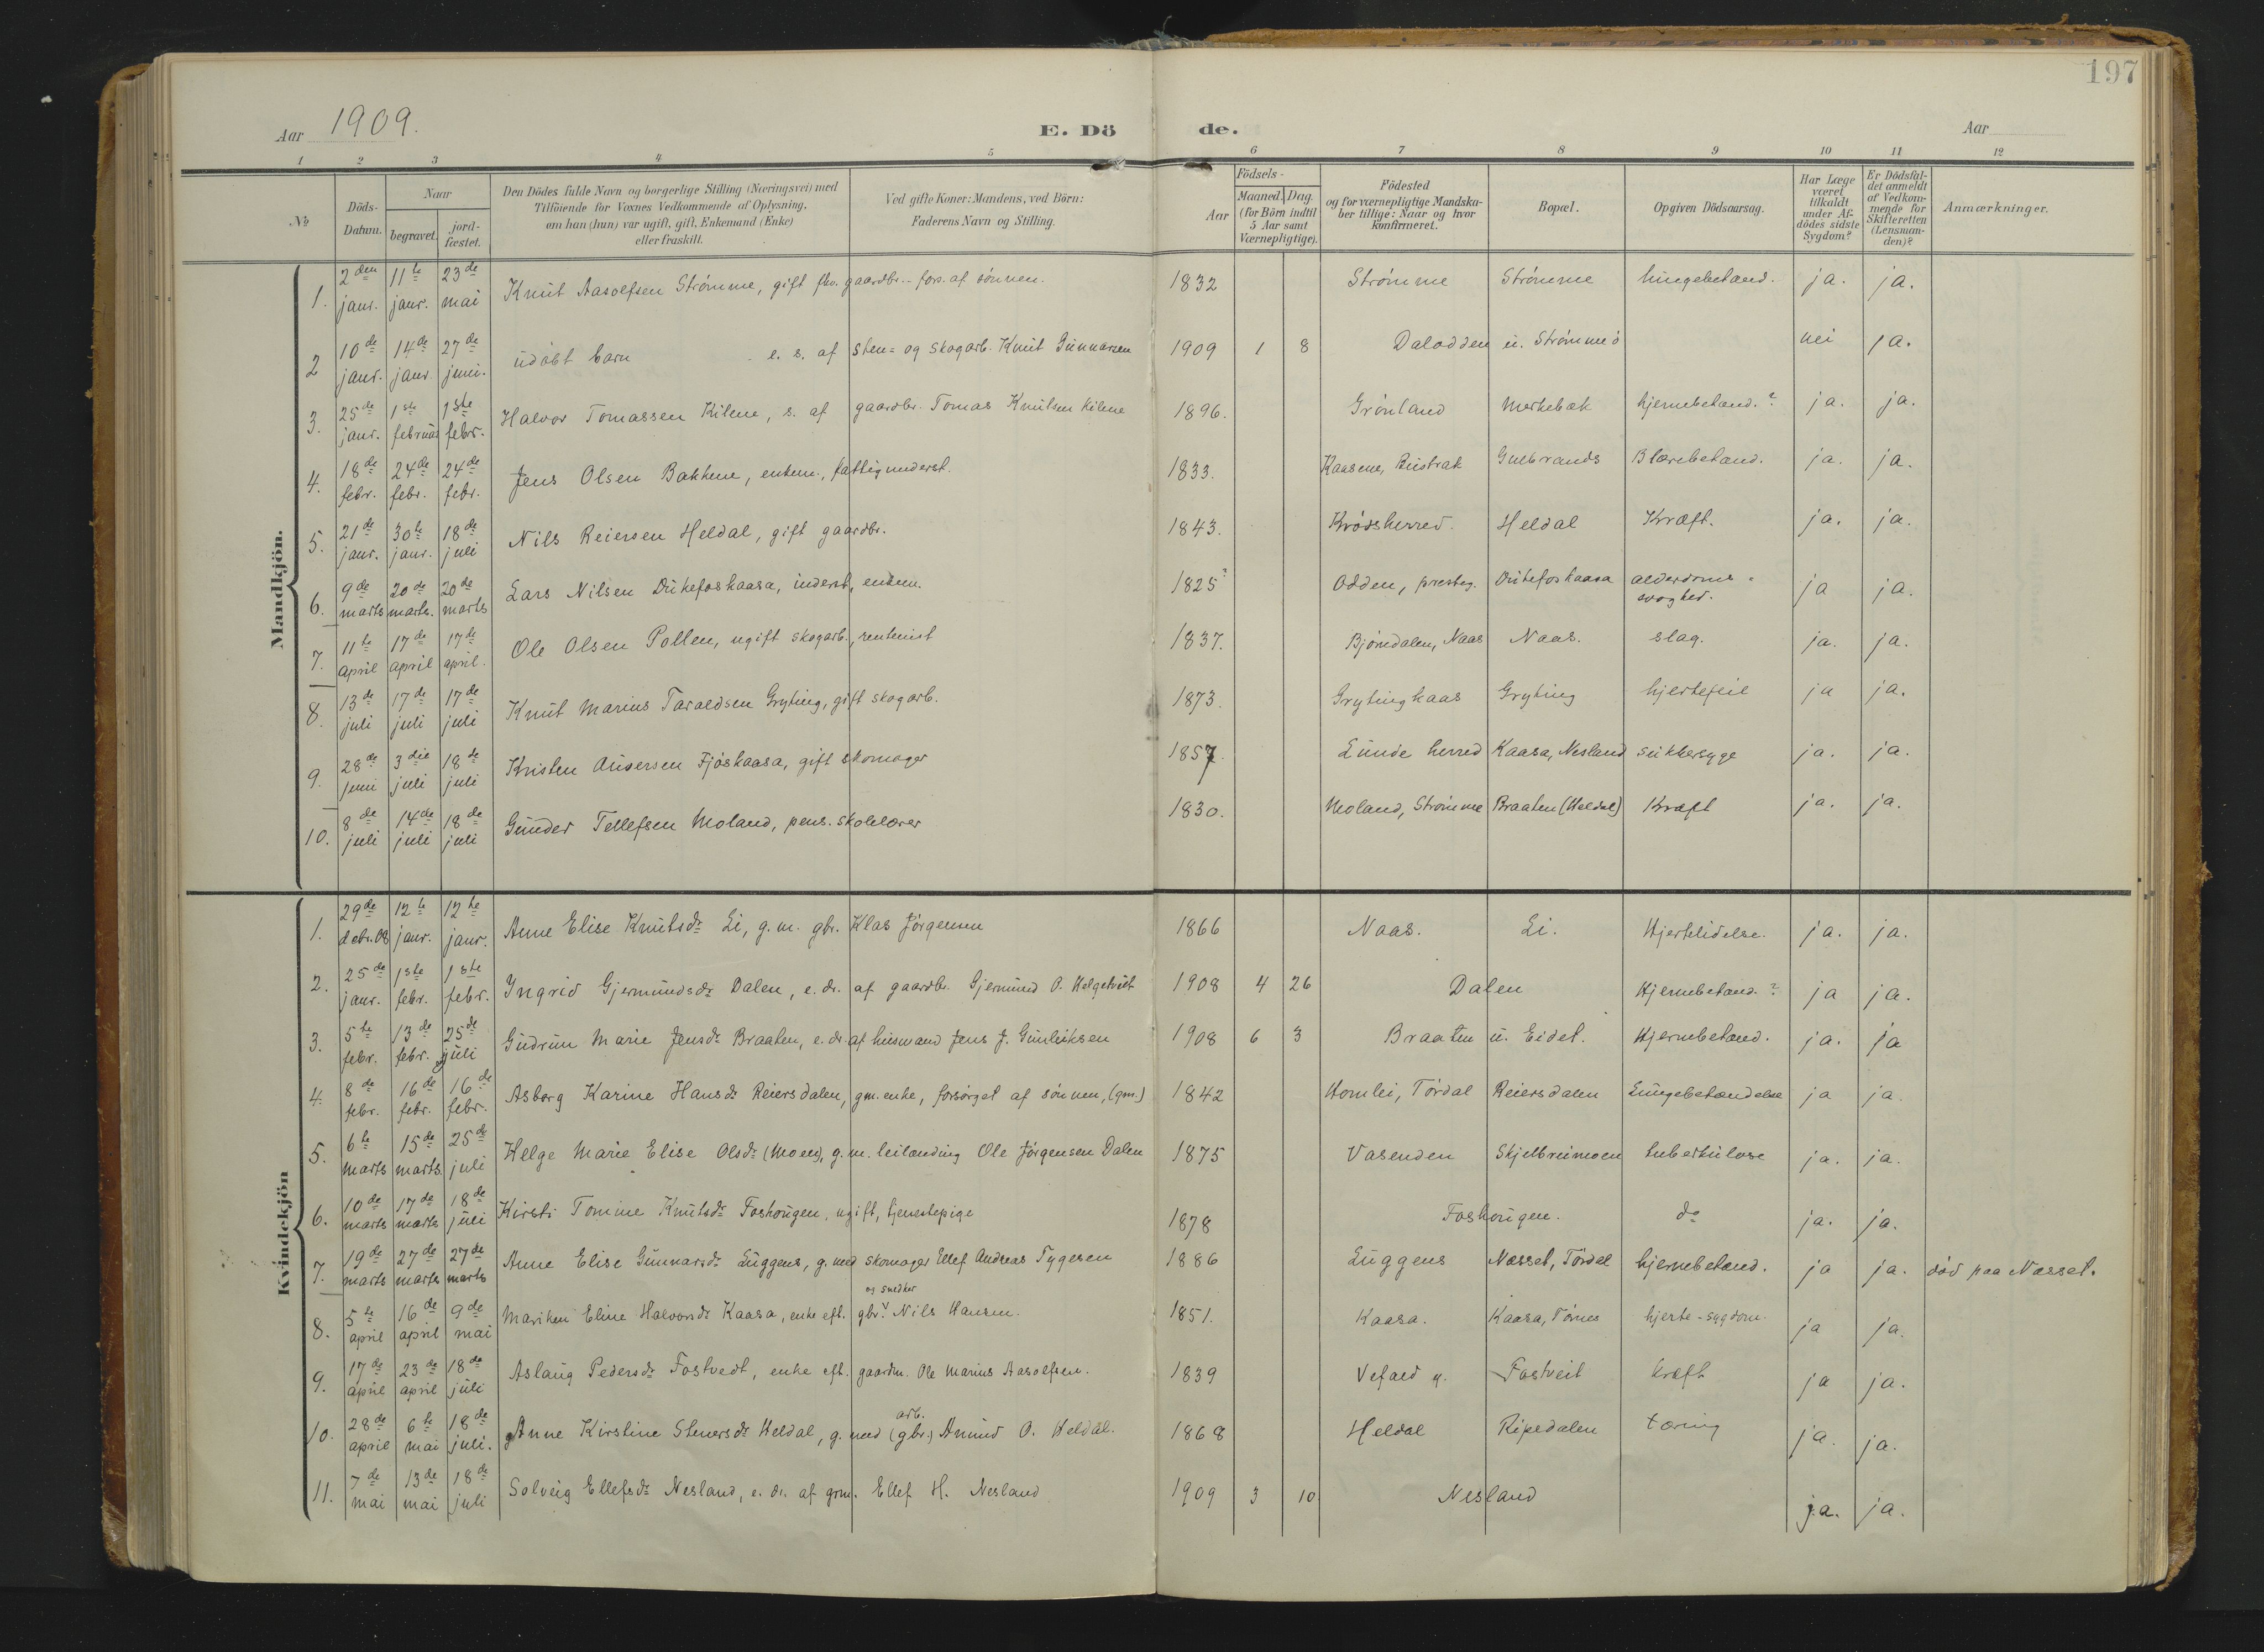 197
Aar 1909.
E. Dö de.
Aar
1 2 3 4 5 6 7 8 9 10 11 12
№
Döds-Datum.
Naar
begravet.
jord-fæstet.
Den Dödes fulde Navn og borgerlige Stilling (Næringsvei) med
Tilföiende for Voxnes Vedkommende af Oplysning,
om han (hun) var ugift, gift, Enkemand (Enke)
eller fraskilt.
Ved gifte Koner: Mandens, ved Börn:
Faderens Navn og Stilling.
Födsels-
Aar
Maaned. Dag.
(for Börn indtil
5 Aar samt
Værnepligtige).
Födested
og for værnepligtige Mandska-
ber tillige: Naar og hvor
konfirmeret.
Bopæl.
Opgiven Dödsaarsag.
Har Læge
været
tilkaldt
under Af-
dödes sidste
Sygdom?
Er Dödsfal-
det anmeldt
af Vedkom-
mende for
Skifteretten
(Lensman-
den)?
Anmærkninger.
Mandkjön.
1. 2den janr. 11te janr. 23de mai Knut Aasolfsen Strømme, gift fhv. gaardbr. - fors. af sønnen. 1832 Strømme Strømme lungebetænd. ja. ja.
2 10de janr. 14de janr 27de juni. udøbt barn e. s. af sten= og skogarb. Knut Gunnarsen 1909 1 8 Dalodden u. Strømme nei ja.
3. 25de janr. 1ste februar 1ste febr. Halvor Tomassen Kilene, s. af gaardbr. Tomas Knutsen Kilene 1896. Grønland Merkebæk hjernebetænd.? ja. ja.
4. 18de febr. 24de febr. 24de febr. Jens Olsen Bakkene, enkem., fattigunderst. 1833. Kaasene, Bustrak Gulbrands Blærebetænd. ja. ja.
5. 21de janr. 30te janr. 18de juli Nils Reiersen Heldal, gift gaardbr. 1843. Krødsherred. Heldal Kræft. ja. ja.
6. 9de marts 20de marts. 20de marts Lars Nilsen Dukefoskaasa, inderst, enkem. 1825? Odden, presteg. Dukefoskaasa alderdoms-svaghed. ja ja.
7. 11te april 17de april 17de april. Ole Olsen Pollen, ugift skogarb., rentenist 1837. Bjørndalen, Naas Naas. slag. ja. ja.
8. 13de juli 17de juli 17de juli Knut Marius Taraldsen Gryting, gift skogarb. 1873. Grytingkaas Gryting hjertefeil ja ja.
9. 28de juni 3die juli 18de juli Kristen Auversen Fjøskaasa, gift skomager 1857. Lunde herred Kaasa, Nesland sukkersyge ja. ja.
10. 8de juli 14de juli 18de juli Gunder Tellefsen Moland, pens. skolelærer 1830. Moland, Strømme Braaten (Heldal) Kræft ja. ja.
Kvindekjön
1. 29de debr. 08 12te janr. 12te janr. Anne Elise Knutsdr Li, g. m. gbr. Klas Jørgensen 1866 Naas. Li. Hjertelidelse. ja. ja.
2. 25de janr. 1ste febr. 1ste febr. Ingrid Gjermundsdr Dalen, e. dr. af gaardbr. Gjermund O. Helgetveit 1908 4 26 Dalen Hjernebetænd.? ja ja.
3. 5te febr. 13de febr. 25de juli Gudrun Marie Jensdr Braaten, e. dr. af husmand Jens J. Gunleiksen 1908 6 3 Braaten u. Eidet. Hjernebetænd. ja. ja
4. 8de febr. 16de febr. 16de febr. Asborg Karine Hansdr Reiersdalen, gm. enke, forsørget af sønnen, (gm.) 1842 Homlei, Tørdal Reiersdalen Lungebetændelse ja ja.
5. 6te marts 15de marts. 25de juli Helge Marie Elise Olsdr (Moen), g. m. leilænding Ole Jørgensen Dalen 1875 Vasenden Skjelbreimoen tuberkulose ja. ja.
6. 10de marts 17de marts 18de juli Kirsti Tomine Knutsdr Foshougen, ugift, tjenestepige 1878 Foshougen. do ja. ja.
7. 19de marts 27de marts 27de marts Anne Elise Gunnarsdr Luggens, g. med skomager Ellef Andreas Tygesen 1886 Luggens Næsset, Tørdal hjernebetænd. ja ja. død paa Næsset.
8. 5te april 16de april 9de mai Mariken Eline Halvorsdr Kaasa, enke eft. gbr. og snedker Nils Hansen. 1851. Kaasa. Kaasa, Tørnes hjerte-sygdom. ja ja.
9. 17de april 23de april 18de juli Aslaug Pedersdr Fostvedt, enke eft. gaardm. Ole Marius Aasolfsen. 1839 Vefald Fostveit kræft ja ja.
10. 28de april 6te mai 18de juli. Anne Kirstine Stenersdr Heldal, g. med (gbr.) arb. Anund O. Heldal. 1868 Heldal Ripedalen tæring ja. ja.
11. 7de mai 13de mai 18de juli Solveig Ellefsdr Nesland, e. dr. af grm. Ellef H. Nesland 1909 3 10 Nesland ja. ja.